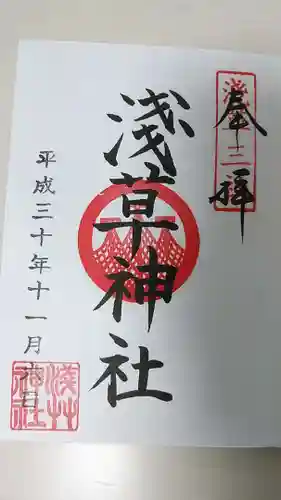 奉拝
淺草神社
平成三十年十一月六日
淺草
神社